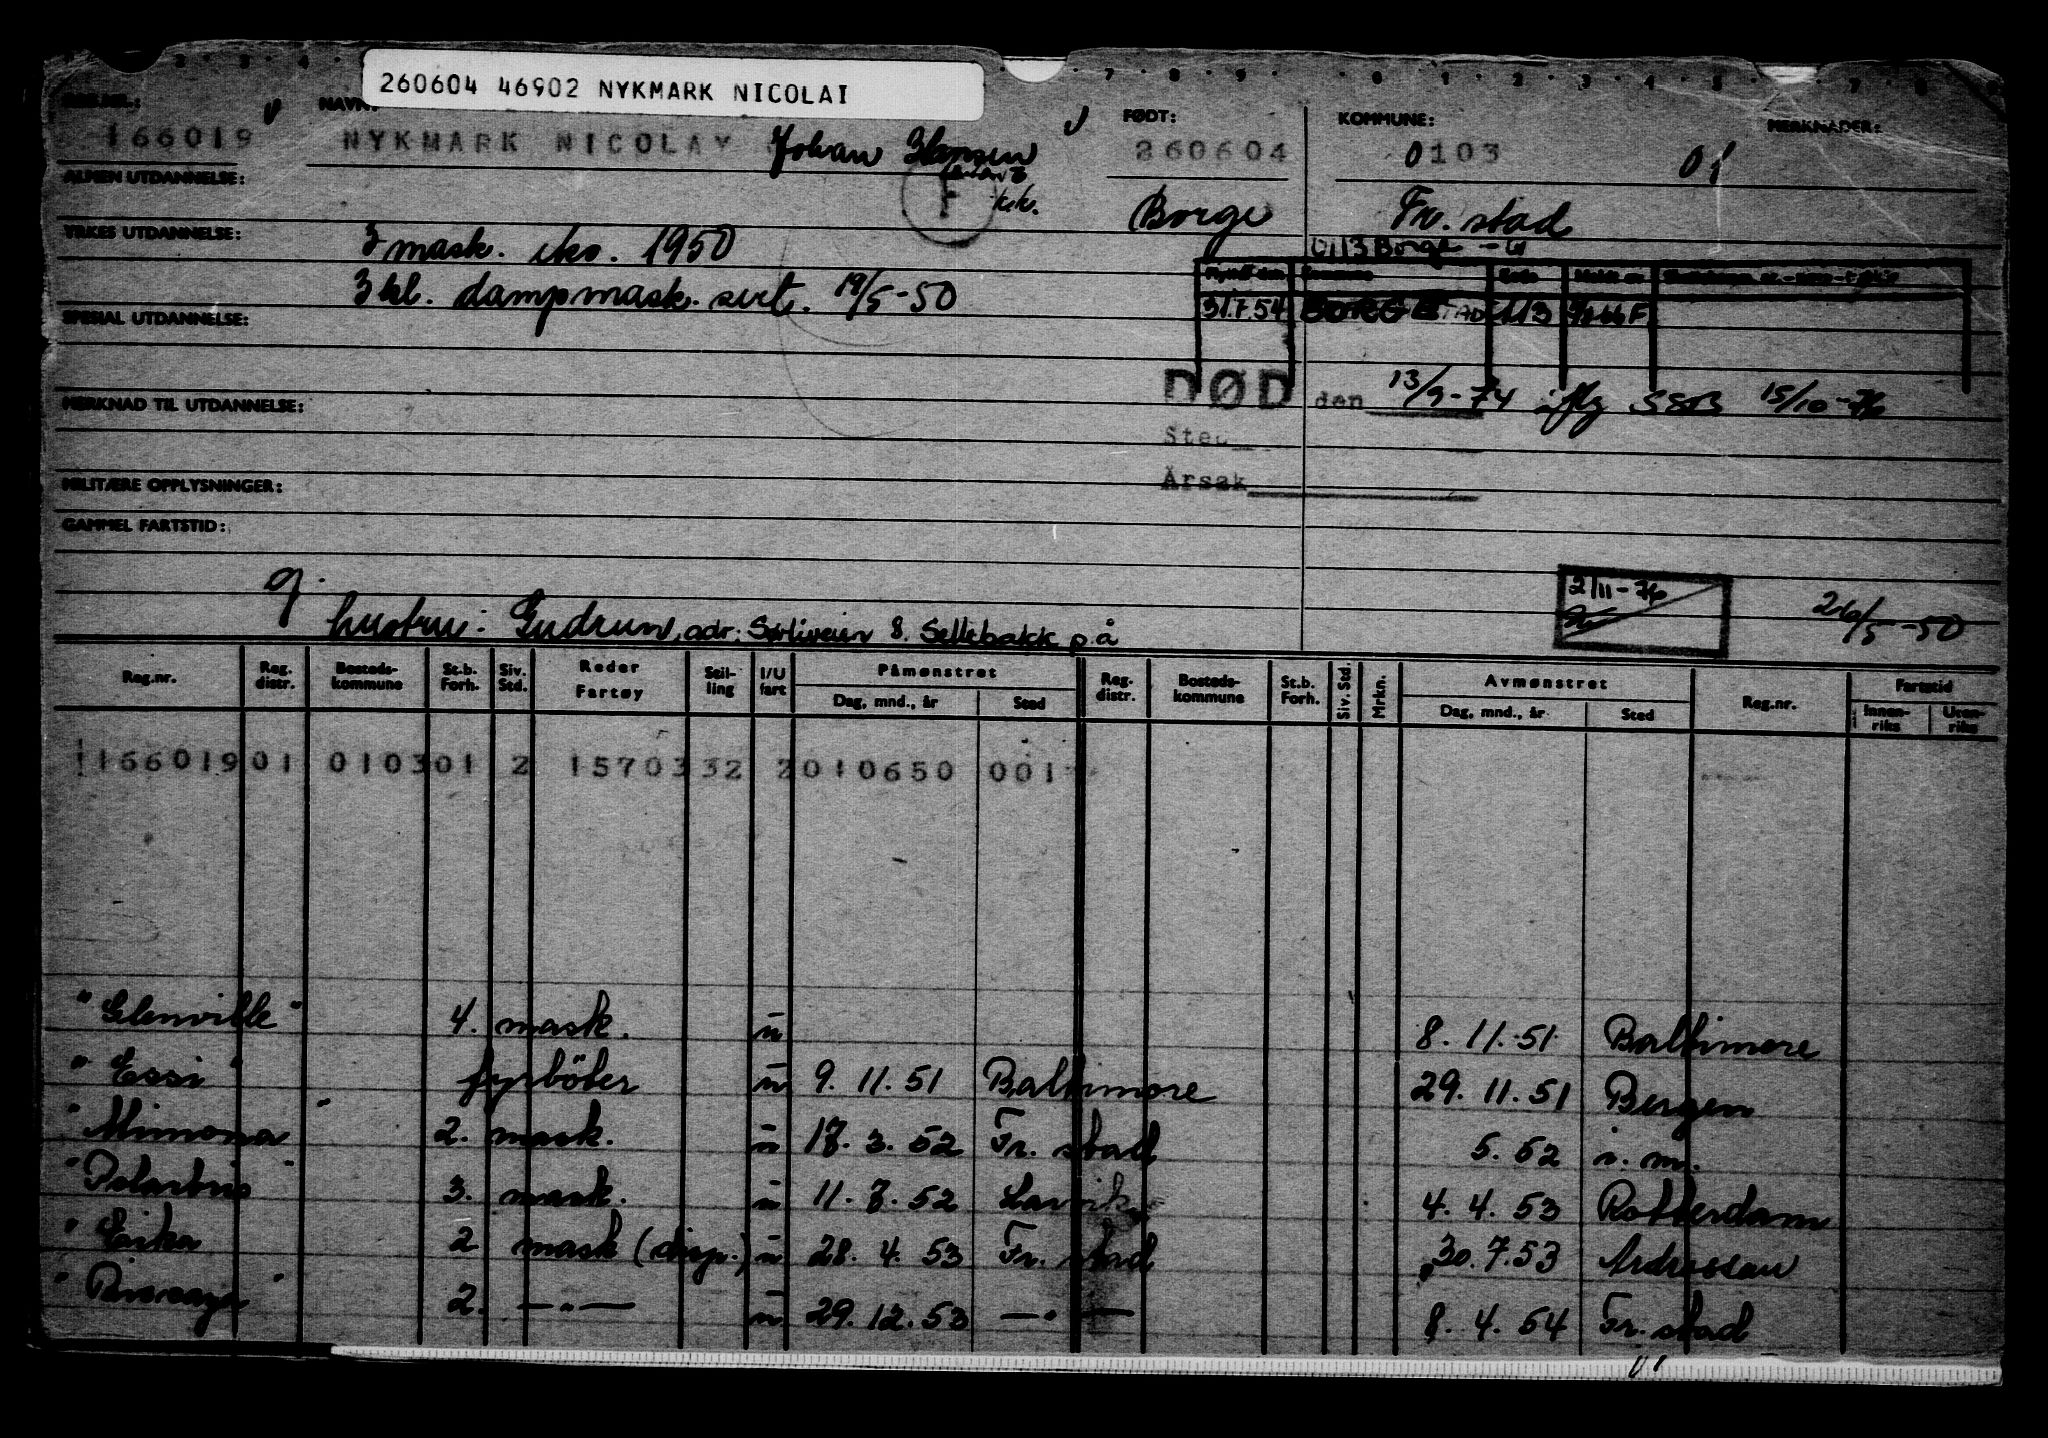 260604 46902 NYKMARK NICOLAI
NAVN: FØDT: KOMMUNE: MERKNADER:
166019 NYKMARK NICOLAY Johan Hansen 260604 0103 01
ALMEN UTDANNELSE: F k.k. Borge Fr. stad
YRKES UTDANNELSE: 3 mask. eks. 1950 0113 Borge
3 kl. dampmask. sert. 19/5-50
31.7.54 BORGE 113
SPESIAL UTDANNELSE:
DØD den 13/9-74 iflg SSB 15/10-76
MERKNAD TIL UTDANNELSE:
Sted
Årsak
MILITÆRE OPPLYSNINGER:
GAMMEL FARTSTID:
g. 2/11-76 26/5-50
hustru: Gudrun, adr: Sørliveien 8. Sellebakk p.å
Reg.nr. Reg. distr. Bosteds-kommune St.b. Forh. Siv. Std. Reder Fartøy Seil-ling I/U fart Påmønstret Dag, mnd., år Sted Reg. distr. Bosteds-kommune St.b. Forh. Siv. Std. Mrkn. Avmønstret Dag, mnd., år Sted Reg.nr. Fartstid Innen-riks Uten-riks
116601901 010301 2 15703 32 2010650 001
"Glenville" 4. mask. u 8. 11. 51 Baltimore
"Essi" fyrböter u 9. 11. 51 Baltimore 29. 11. 51 Bergen
"Mimona" 2. mask. u 18. 3. 52 Fr. stad 5. 52 i. m.
"Polartris" 3. mask. u 11. 7. 52 Larvik 4. 4. 53 Rotterdam
"Erika" 2 mask (disp.) u 28. 4. 53 Fr. stad 30. 7. 53 Ardrossan
2. —"— u 29. 12. 53 —"— 8. 4. 54 Fr. stad